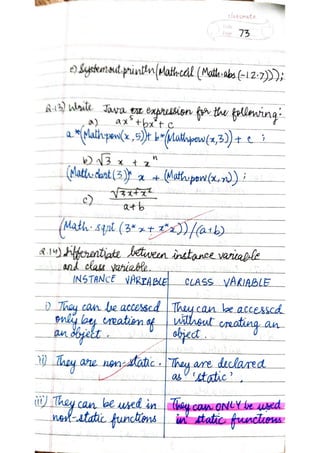 classmate
Date
Page 73
c) System.out.println(Math.ceil (Math.abs (-12.7)));
Q.13) Write Java exp expression for the following:
a) ax⁵ + bx³ + c
a*(Math.pow(x,5)) + b*(Math.pow(x,3)) + c ;
b) √3 x + xⁿ
(Math.sqrt (3)* x + (Math.pow(x,n)) ;
c) √3x+x²
a+b
(Math.sqrt (3*x + x*x))/(a+b)
Q.14) Differentiate between instance variable
and class variable.
INSTANCE VARIABLE CLASS VARIABLE
i) They can be accessed They can be accessed
only by creation of without creating an
an object. object.
ii) They are non-static. They are declared
as 'static'.
iii) They can be used in They can ONLY be used
non-static functions in static functions